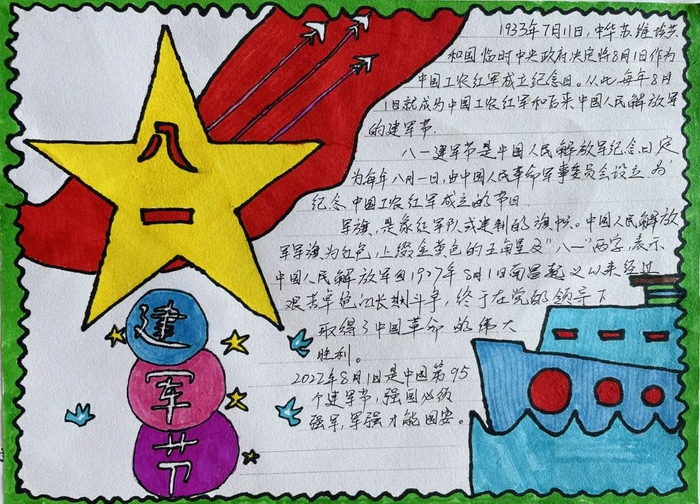 八
一
建
军
节
1933年7月11日,中华苏维埃共
和国临时中央政府决定将8月1日作为
中国工农红军成立纪念日。从此,每年8月
1日就成为中国工农红军和后来中国人民解放军
的建军节.
八一建军节是中国人民解放军纪念日,定
为每年八月一日,由中国人民革命军事委员会设立,为
纪念中国工农红军成立的节日.
军旗,是象征军队或建制的旗帜。中国人民解放
军军旗为红色,上缀金黄色的五角星及"八一"两字,表示
中国人民解放军自1927年8月1日南昌起义以来经过
艰苦卓绝的长期斗争,终于在党的领导下
取得了中国革命的伟大
胜利。
2022年8月1日是中国第95
个建军节,强国必须
强军,军强才能国安。